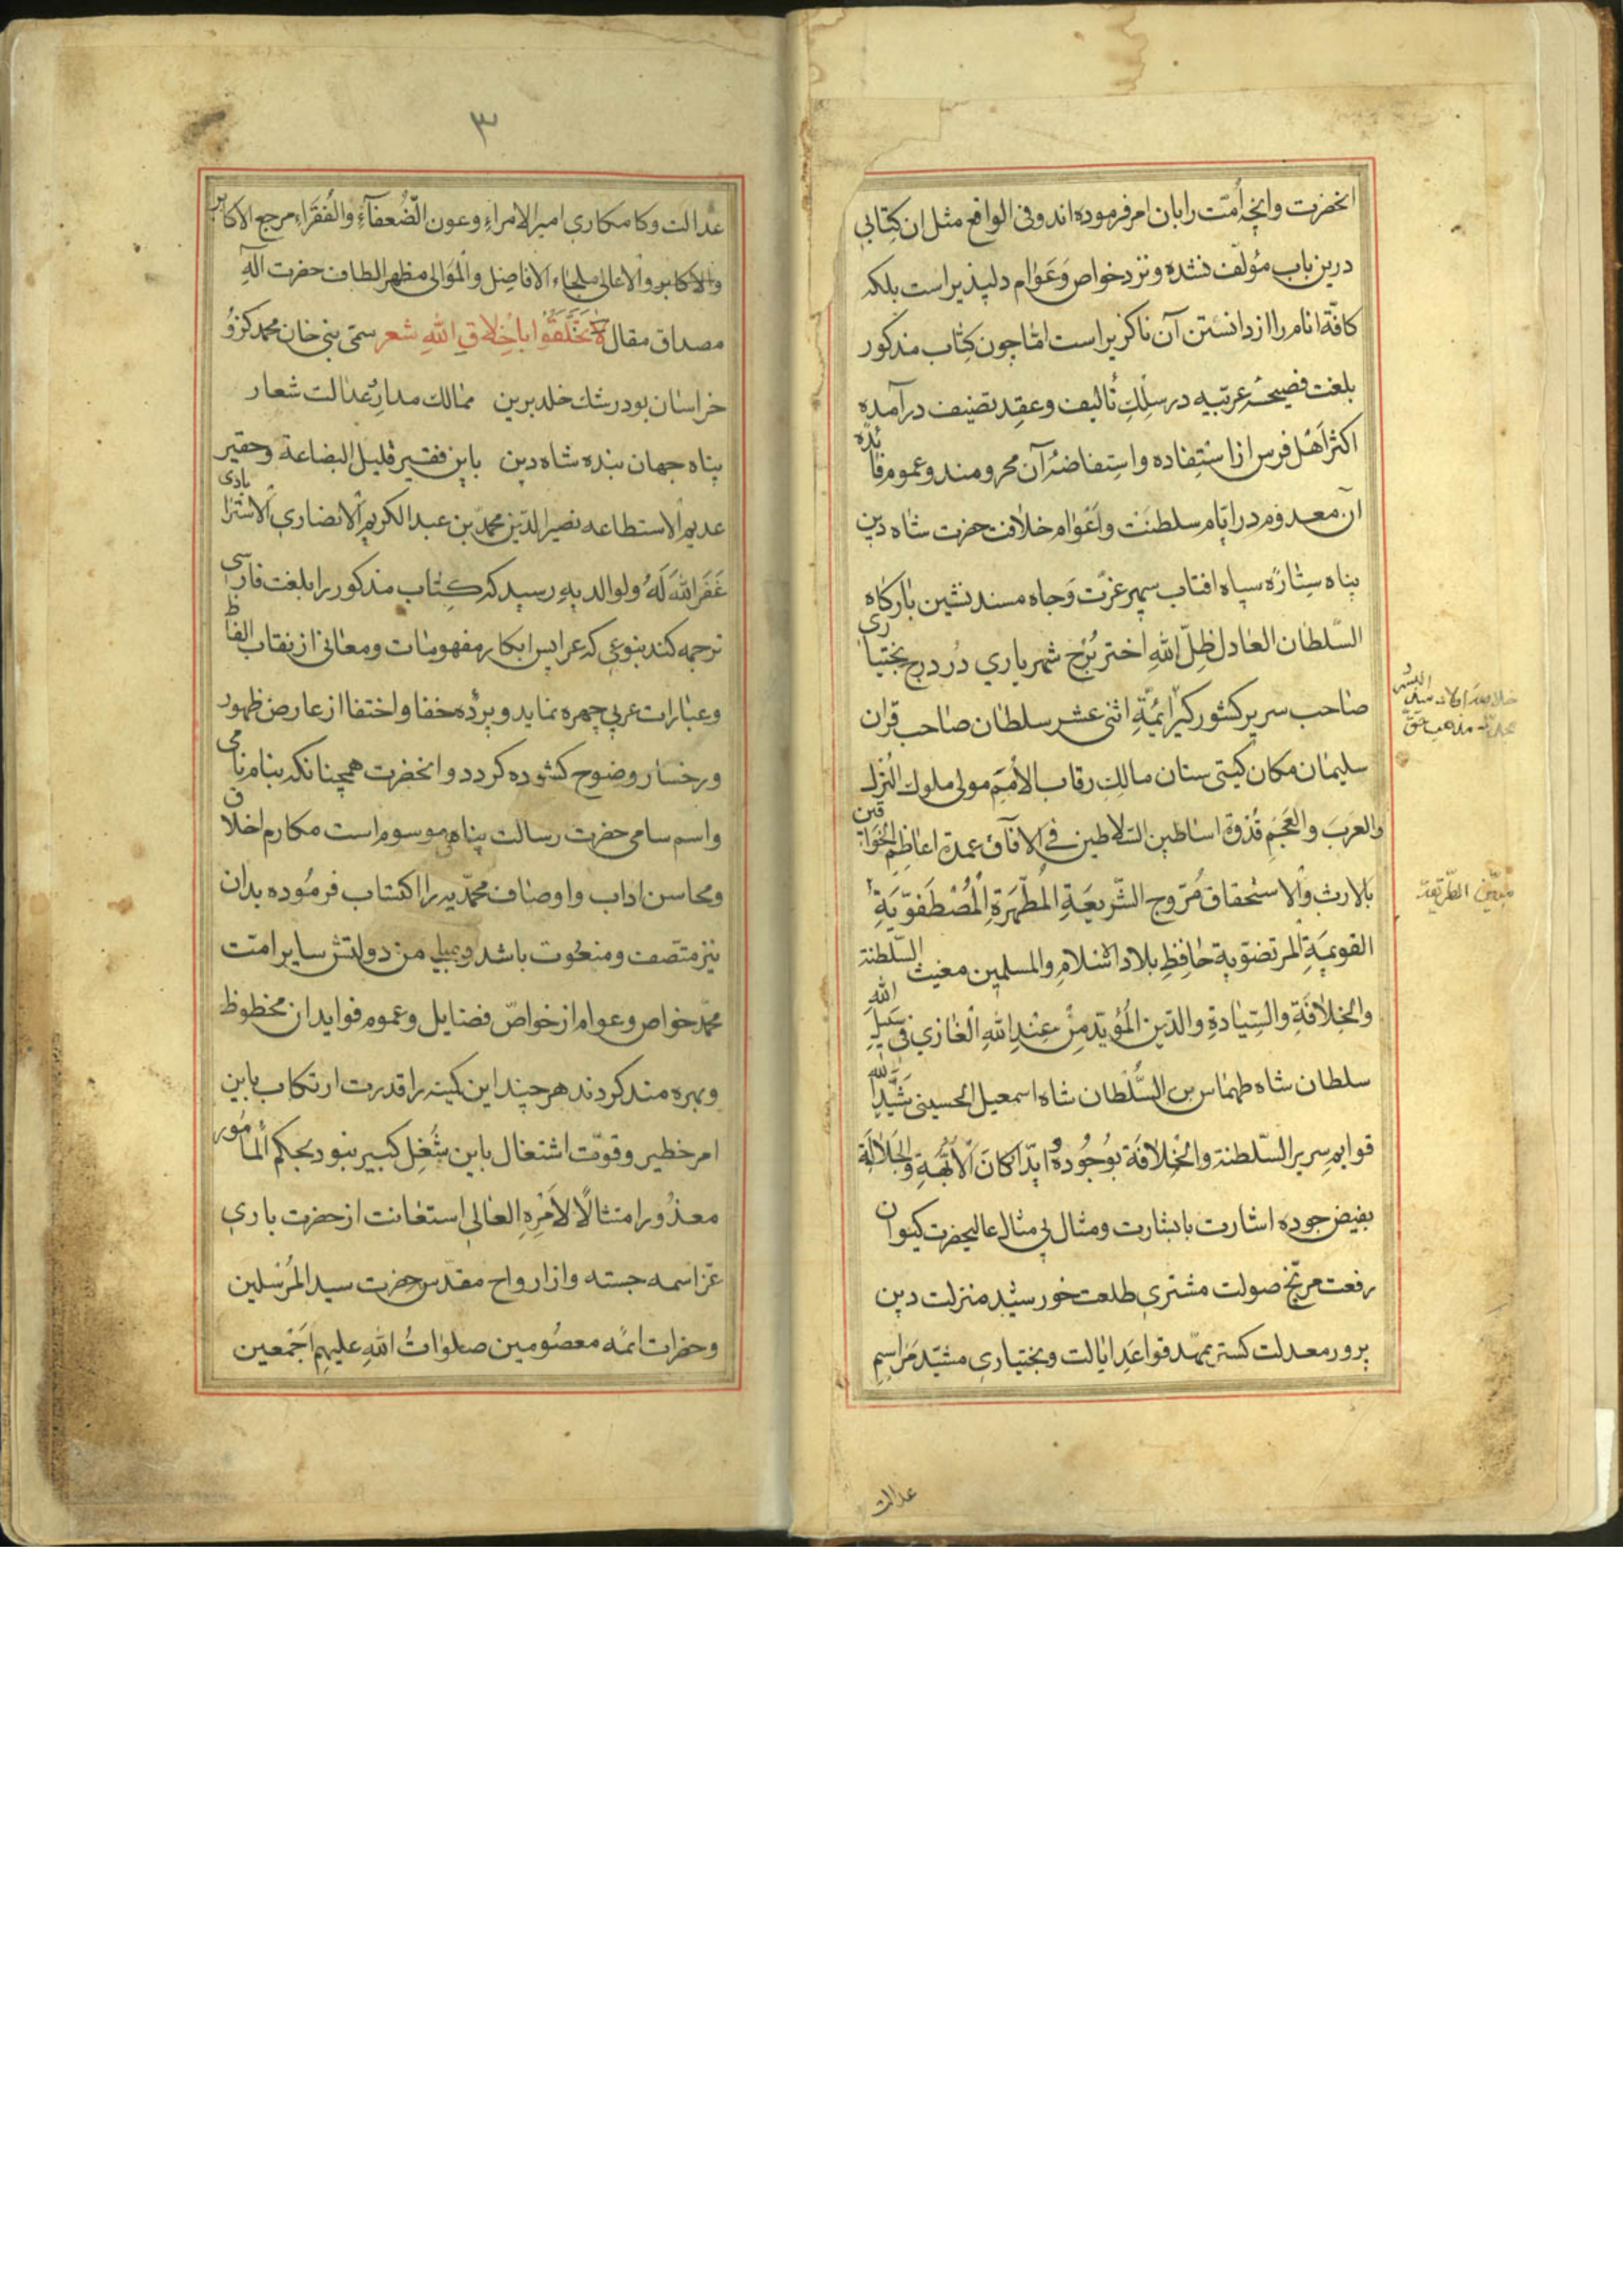 انحضرت وانچه اُمّت را بان امر فرموده اند وفی الواقع مثل ان کِتابی
درین باب مؤلّف نشده ونزد خواص وَعَوام دلپذیر است بلکه
کافّهٔ انام را از دانستن آن ناکزیر است امّا چون کِتاب مذکور
بلغت فصیحهٔ عربّیه در سِلكِ تألیف وعقِد تصنیف درآمده
اکثر اَهْل فرس از اسْتِفاده واستِفاضهٔ آن محرومند وعموم فائده
آن معدوم در ایّام سلطنَت واَعْوام خلافت حضرت شاه دین
پناه سِتارَه سپاه افتاب سپهر عزّت وَجاه مسند نشین بارکاه
السّلطان العٰادل ظِلّ اللهِ اختر بُرْج شهریاری دُر درج بختیاری
صٰاحب سریر کشور کیر ایمَّةِ اثنی عشر سلطان صٰاحب قران
سلیمٰان مکان کیتی ستان مالِكِ رقاب الأُمَمِ مولی ملوك التُرك
والعربَ والعَجَمِ قُدْوة اسٰاطین السّلاطین فی الآفاق عمدة اعٰاظِمِ الخَوٰاقین
بالارث والاستحقاق مُرَوج الشّریعَةِ المُطَهّرَةِ الْمُصْطَفَوّیَةِ
القویمَةِ المرتضَوّیةِ حٰافِظِ بلاد الاسْلامِ والمسلمین مغیث السّلطنة
والخِلافَةِ والسِّیٰادةِ والدّین المُؤیّد مِنْ عِنْدِ اللهِ الْغٰازی فی سَبیلِ الله
سلطان شاه طهمٰاس بن السُّلْطان شاه اسمعیل الحسینی شَیَّدَ الله
قوایم سریر السّلطنة والخلافَة بوُجُوده وایّدا کانَ الأبّهَةِ والجَلالَةِ
بفیض جوده اشارت با بشارت ومثال بی مثال عالیحضرت کیوان
رفعت مرّیخ صولت مشتری طلعت خورشید منزلت دین
پرور معدلت کستر ممهّد قواعَدِ ایالت وبختیاری مشیّد مَراسِمِ
خلاصه اولاد سید البشر
مذهب حقّ
مبیّن الطّریقة
عدالت
٣
عدالت وکامکاری امیر الامراءِ وعون الضُعفآءِ والفُقَراءِ مرجع الاکابر
والاکابر والاعالی ملجاء الافاضِل والمَوَالی مظهر الطاف حضرت الٰهِ
مصداق مقال لا تَخَلَّقُوا باَخْلاقِ اللهِ شعر سمّی نبی خان محمد کزو
خراسٰان بود رشك خلد برین ممٰالك مدار عدٰالت شعار
پناه جهان بنده شاه دین باین فقیر قلیل البضاعة وحقیر
عدیم الاستطاعه نصیر الدّین محمدّ بن عبد الکریم الانصاری الاستراباذی
غَفَرَ اللهُ لَهُ ولوالدیهِ رسید که کِتاب مذکور را بلغت فارسی
ترجمه کند بنوعی که عرایس ابکار مفهومٰات ومعانی از نقاب الفاظ
وعبٰارات عربی چهره نماید وپرْده خفا واختفا از عارض ظهور
ورخسار وضوح کشوده کردد وانحضرت همچنانکه بنام نامی
واسم سامی حضرت رسالت پناهی موسوم است مکارم اخلاق
ومحاسن اداب واوصٰاف محمّدیه را اکتساب فرموده بدان
نیز متّصف ومنعُوت باشد وبمیٰامن دولتش سایر امّت
محمّد خواص وعوام از خواصّ فضایل وعموم فواید ان محظوظ
وبهره مند کردند هرچند این کمینه را قدرت ارتکاب باین
امر خطیر وقوّت اشتغال باین شُغِل کبیر نبود بحکم المأمُور
معذُور امتثالًا لاَمْرِهِ العٰالی استعٰانت از حضرت باری
عزّ اسمه جسته واز ارواح مقدّس حضرت سید المُرسَلین
وحضرات ائمّه معصُومین صلوٰاتُ اللهِ علیهِم اَجْمعین